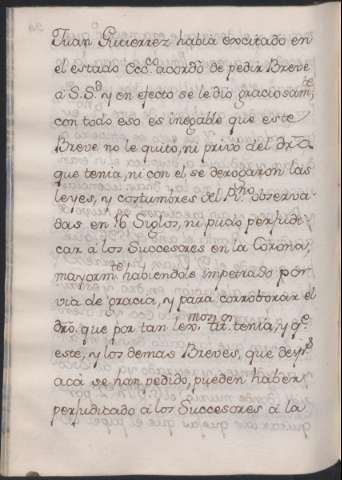 Juan Gutierrez habia excitado en
el estado Ecc.co acordò de pedir Breve
á S.S.d y en efecto se le dió graciosam.te
con todo eso es inegable que este
Breve no le quitó, ni privó del dr͠o
que tenia, ni con el se derogaron las
leyes, y costumbres del R.no observa-
das en 16 Siglos, ni pudo perjudi-
car á los Successores en la Corona,
mayorm.te habiendole impetrado por
via de gracia, y para corroborar el
dr͠o. que por tan lex.mos tit.os tenia, y q.e
este, y los demas Breves, que de
acá se han pedido, pueden haber
perjudicado á los Successores á la